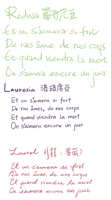 Redna
Et on s'aimera si fort
De nos âme, de nos corps
Et quand viendra la mort
On s'aimera encore un peu
Laurelia
Et on s'aimera si fort
De nos âme, de nos corps
Et quand viendra la mort
On s'aimera encore un peu
Laurel
Et on s'aimera si fort
De nos âme, de nos corps
Et quand viendra la mort
On s'aimera encore un peu